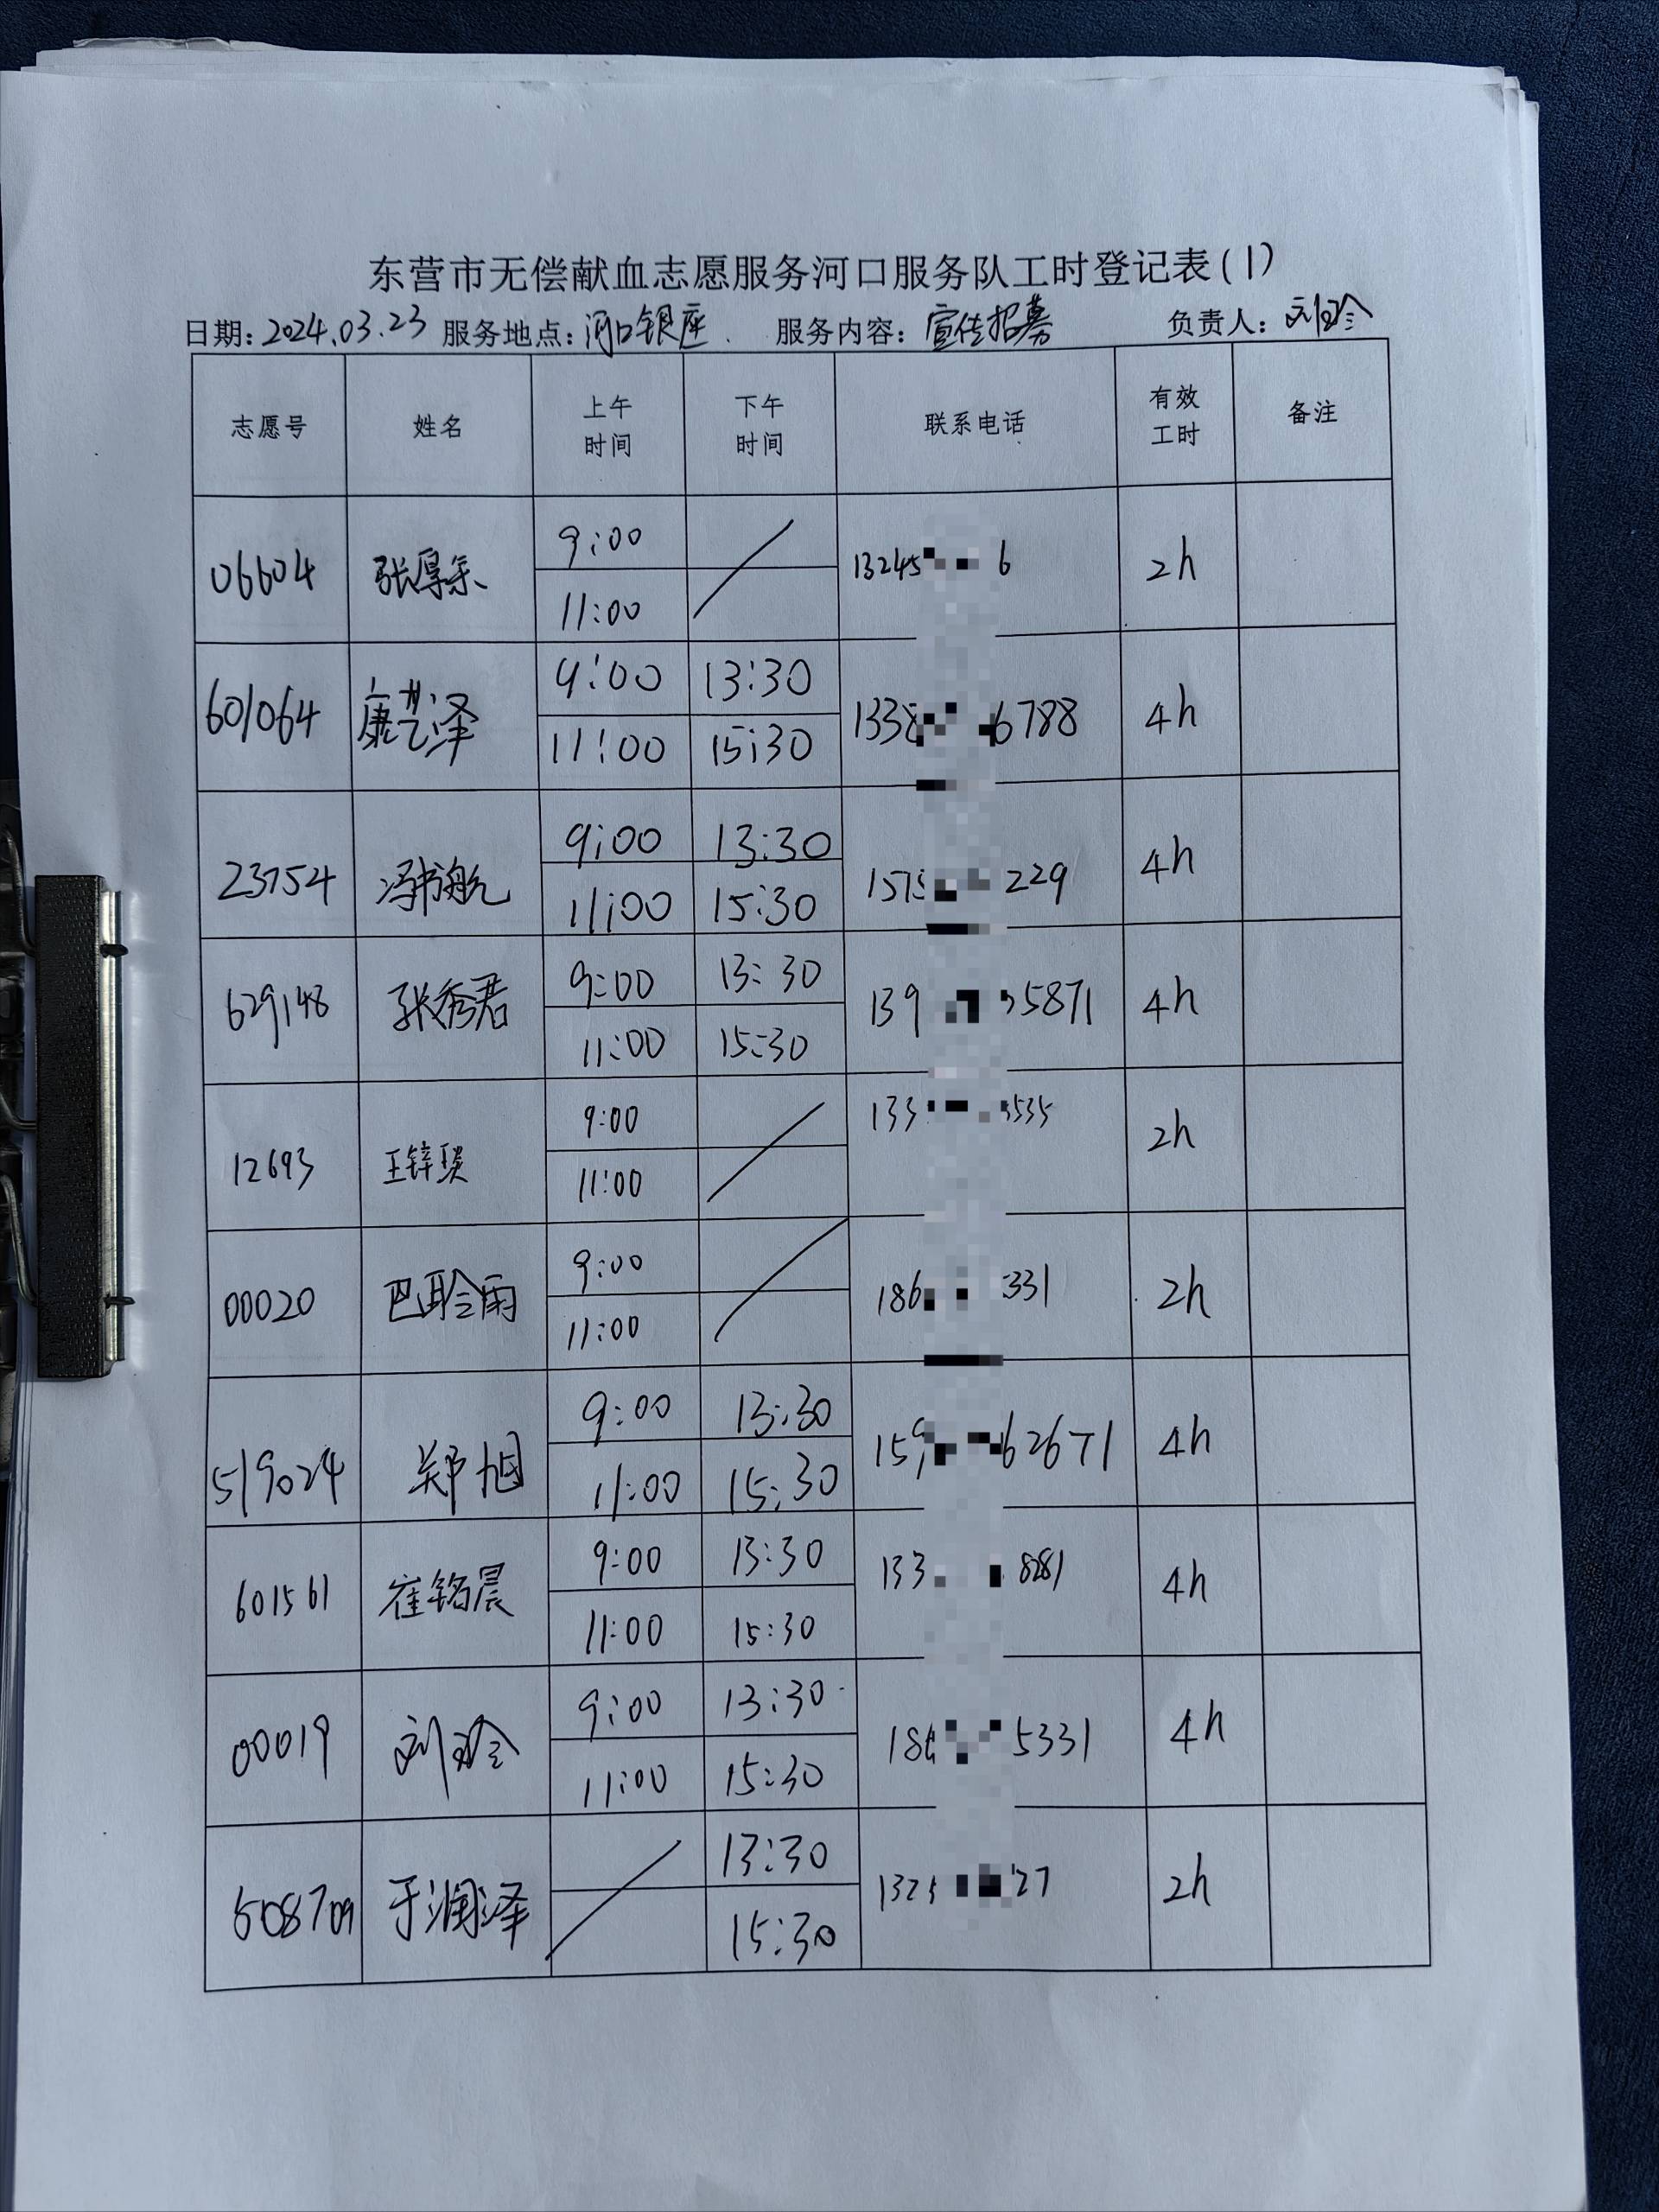 东营市无偿献血志愿服务河口服务队工时登记表(1)
日期: 2024.03.23 服务地点: 河口银座. 服务内容: 宣传招募 负责人: 刘玲
志愿号 姓名 上午时间 下午时间 联系电话 有效工时 备注
06604 张厚 9:00 13245 6 2h
11:00
601064 康艺泽 9:00 13:30 1338 6788 4h
11:00 15:30
23754 冯书航 9:00 13:30 1575 229 4h
11:00 15:30
629148 张秀君 9:00 13:30 139 5871 4h
11:00 15:30
12693 王锌琰 9:00 133 3535 2h
11:00
00020 巴聆雨 9:00 186 331 2h
11:00
519024 郑旭 9:00 13:30 159 62671 4h
11:00 15:30
601561 崔铭晨 9:00 13:30 133 8281 4h
11:00 15:30
00019 刘玲 9:00 13:30 186 5331 4h
11:00 15:30
508709 于润泽 13:30 132 27 2h
15:30